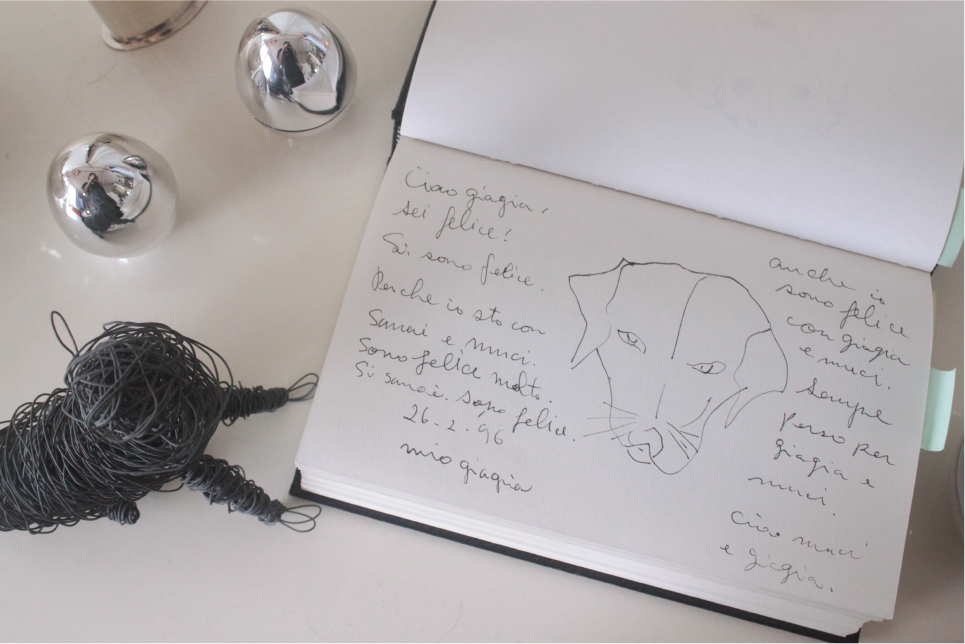 Ciao giagia,
sei felice?
Si sono felice.
Perche io sto con
Sanai e muci.
Sono felice molto.
Si sanai. sono felice.
26-2-96
mio giagia
anche io
sono felice
con giagia
e muci.
Sempre
Penso per
giagia e
muci.
Ciao muci
e giagia.